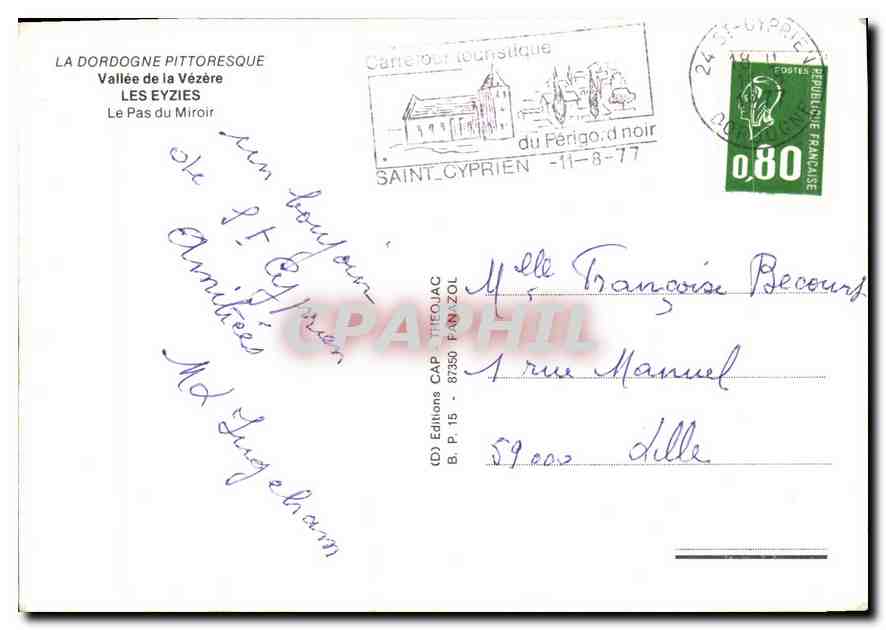 LA DORDOGNE PITTORESQUE
Vallée de la Vézère
LES EYZIES
Le Pas du Miroir
Carrefour touristique
du Périgord noir
SAINT-CYPRIEN -11-8-77
24 ST-CYPRIEN
18 H
DORDOGNE
POSTES
REPUBLIQUE FRANÇAISE
0,80
un bonjour
de St Cyprien
Amitiées
Md
(D) Editions CAP - THEOJAC
B. P. 15 - 87350 PANAZOL
Melle Françoise Becourt
1 rue Manuel
59000 Lille
CPAPHIL